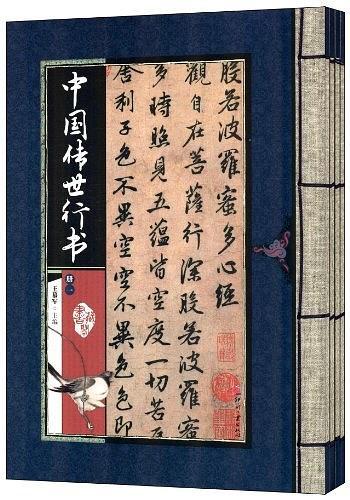 中国传世行书
册一
主编
般若波羅蜜多心經
觀自在菩薩行深般若波羅蜜
多時照見五蘊皆空度一切苦厄
舍利子色不異空空不異色色即